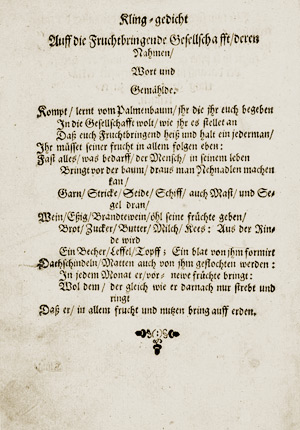 Kling-gedicht
Auff die Fruchtbringende Gesellschafft/deren
Nahmen/
Wort und
Gemählde.
Kompt/ lernt vom Palmenbaum/ ihr die ihr euch begeben
In die Gesellschafft wolt/ wie ihr es stellet an
Daß euch Fruchtbringend heiß und halt ein jederman/
Ihr müsset seiner frucht in allem folgen eben:
Fast alles/ was bedarff/ der Mensch/ in seinem leben
Bringt vor der baum/ draus man Nehnadlen machen
kan/
Garn/ Stricke/ Seide/ Schiff/ auch Mast/ und Se-
gel dran/
Wein/ Eßig/ Brandtewein/ öhl seine früchte geben/
Brot/ Zucker/ Butter/ Milch/ Kees: Aus der Rin-
de wird
Ein Becher/ Leffel/ Topff; Ein blat von ihm formirt
Dachschindeln/ Matten auch von ihm geflochten werden:
In jedem Monat er/ vor- newe früchte bringt:
Wol dem/ der gleich wie er darnach nur strebt und
ringt
Daß er/ in allem frucht und nutzen bring auff erden.